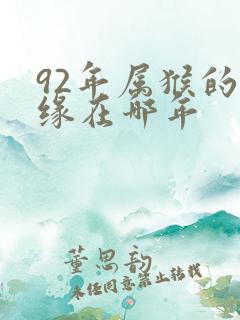 92年属猴的
缘在哪年
董思韵
未经同意禁止转载